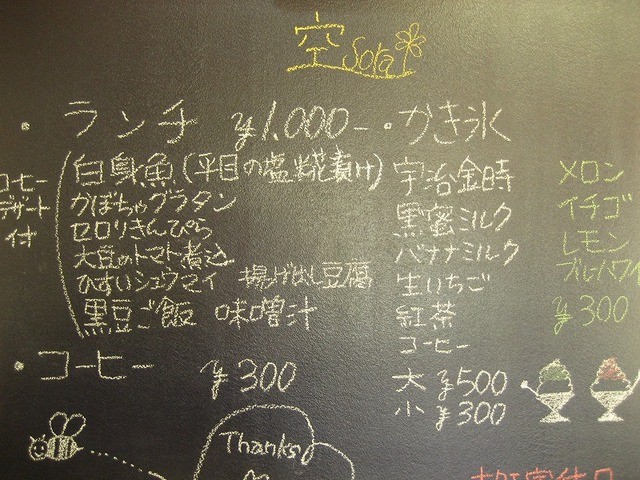 空 Sora
・ランチ ¥1,000-
コーヒー
デザート
付
白身魚(平目の塩糀漬け)
かぼちゃグラタン
セロリきんぴら
大豆のトマト煮込
ひすいシュウマイ 揚げ出し豆腐
黒豆ご飯 味噌汁
・コーヒー ¥300
・かき氷
宇治金時
黒蜜ミルク
バナナミルク
生いちご
紅茶
コーヒー
大 ¥500
小 ¥300
メロン
イチゴ
レモン
ブルーハワイ
¥300
Thanks